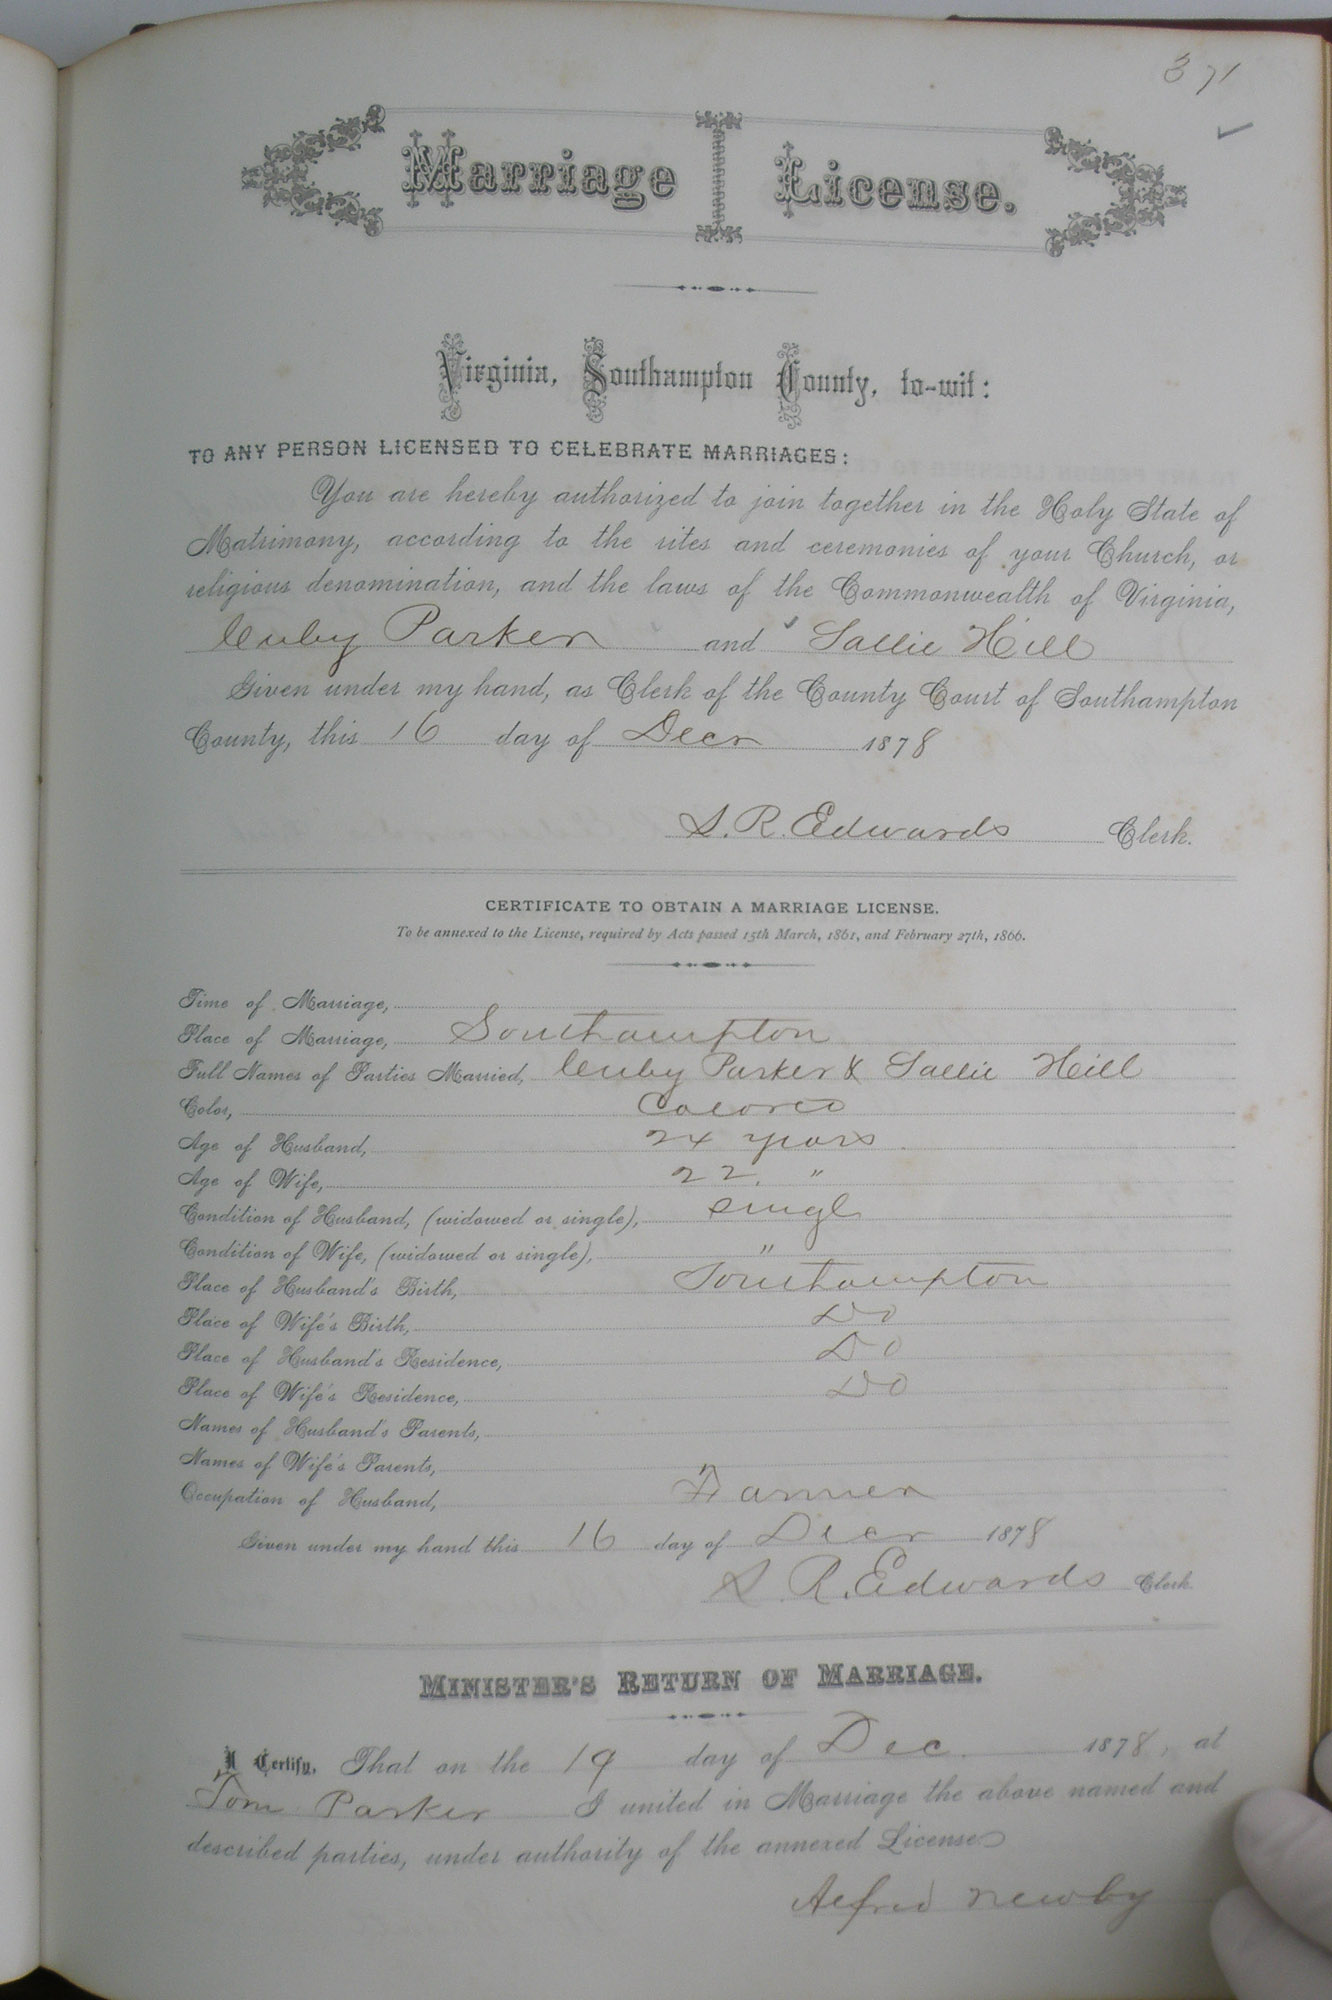 371
Marriage License.
Virginia, Southampton County, to-wit:
TO ANY PERSON LICENSED TO CELEBRATE MARRIAGES:
You are hereby authorized to join together in the Holy State of
Matrimony, according to the rites and ceremonies of your Church, or
religious denomination, and the laws of the Commonwealth of Virginia,
Parker and Sallie Hill
Given under my hand, as Clerk of the County Court of Southampton
County, this 16 day of Decr 1878
S. R. Edwards Clerk.
CERTIFICATE TO OBTAIN A MARRIAGE LICENSE.
To be annexed to the License, required by Acts passed 15th March, 1861, and February 27th, 1866.
Time of Marriage,
Place of Marriage, Southampton
Full Names of Parties Married, Parker & Sallie Hill
Color, Colored
Age of Husband, 24 years
Age of Wife, 22. "
Condition of Husband, (widowed or single), Single
Condition of Wife, (widowed or single), "
Place of Husband's Birth, Southampton
Place of Wife's Birth, Do
Place of Husband's Residence, Do
Place of Wife's Residence, Do
Names of Husband's Parents,
Names of Wife's Parents,
Occupation of Husband, Farmer
Given under my hand this 16 day of Decr 1878
S. R. Edwards Clerk
MINISTER'S RETURN OF MARRIAGE.
I Certify, That on the 19 day of Dec. 1878, at
Tom Parker I united in Marriage the above named and
described parties, under authority of the annexed License
Alfred Newby